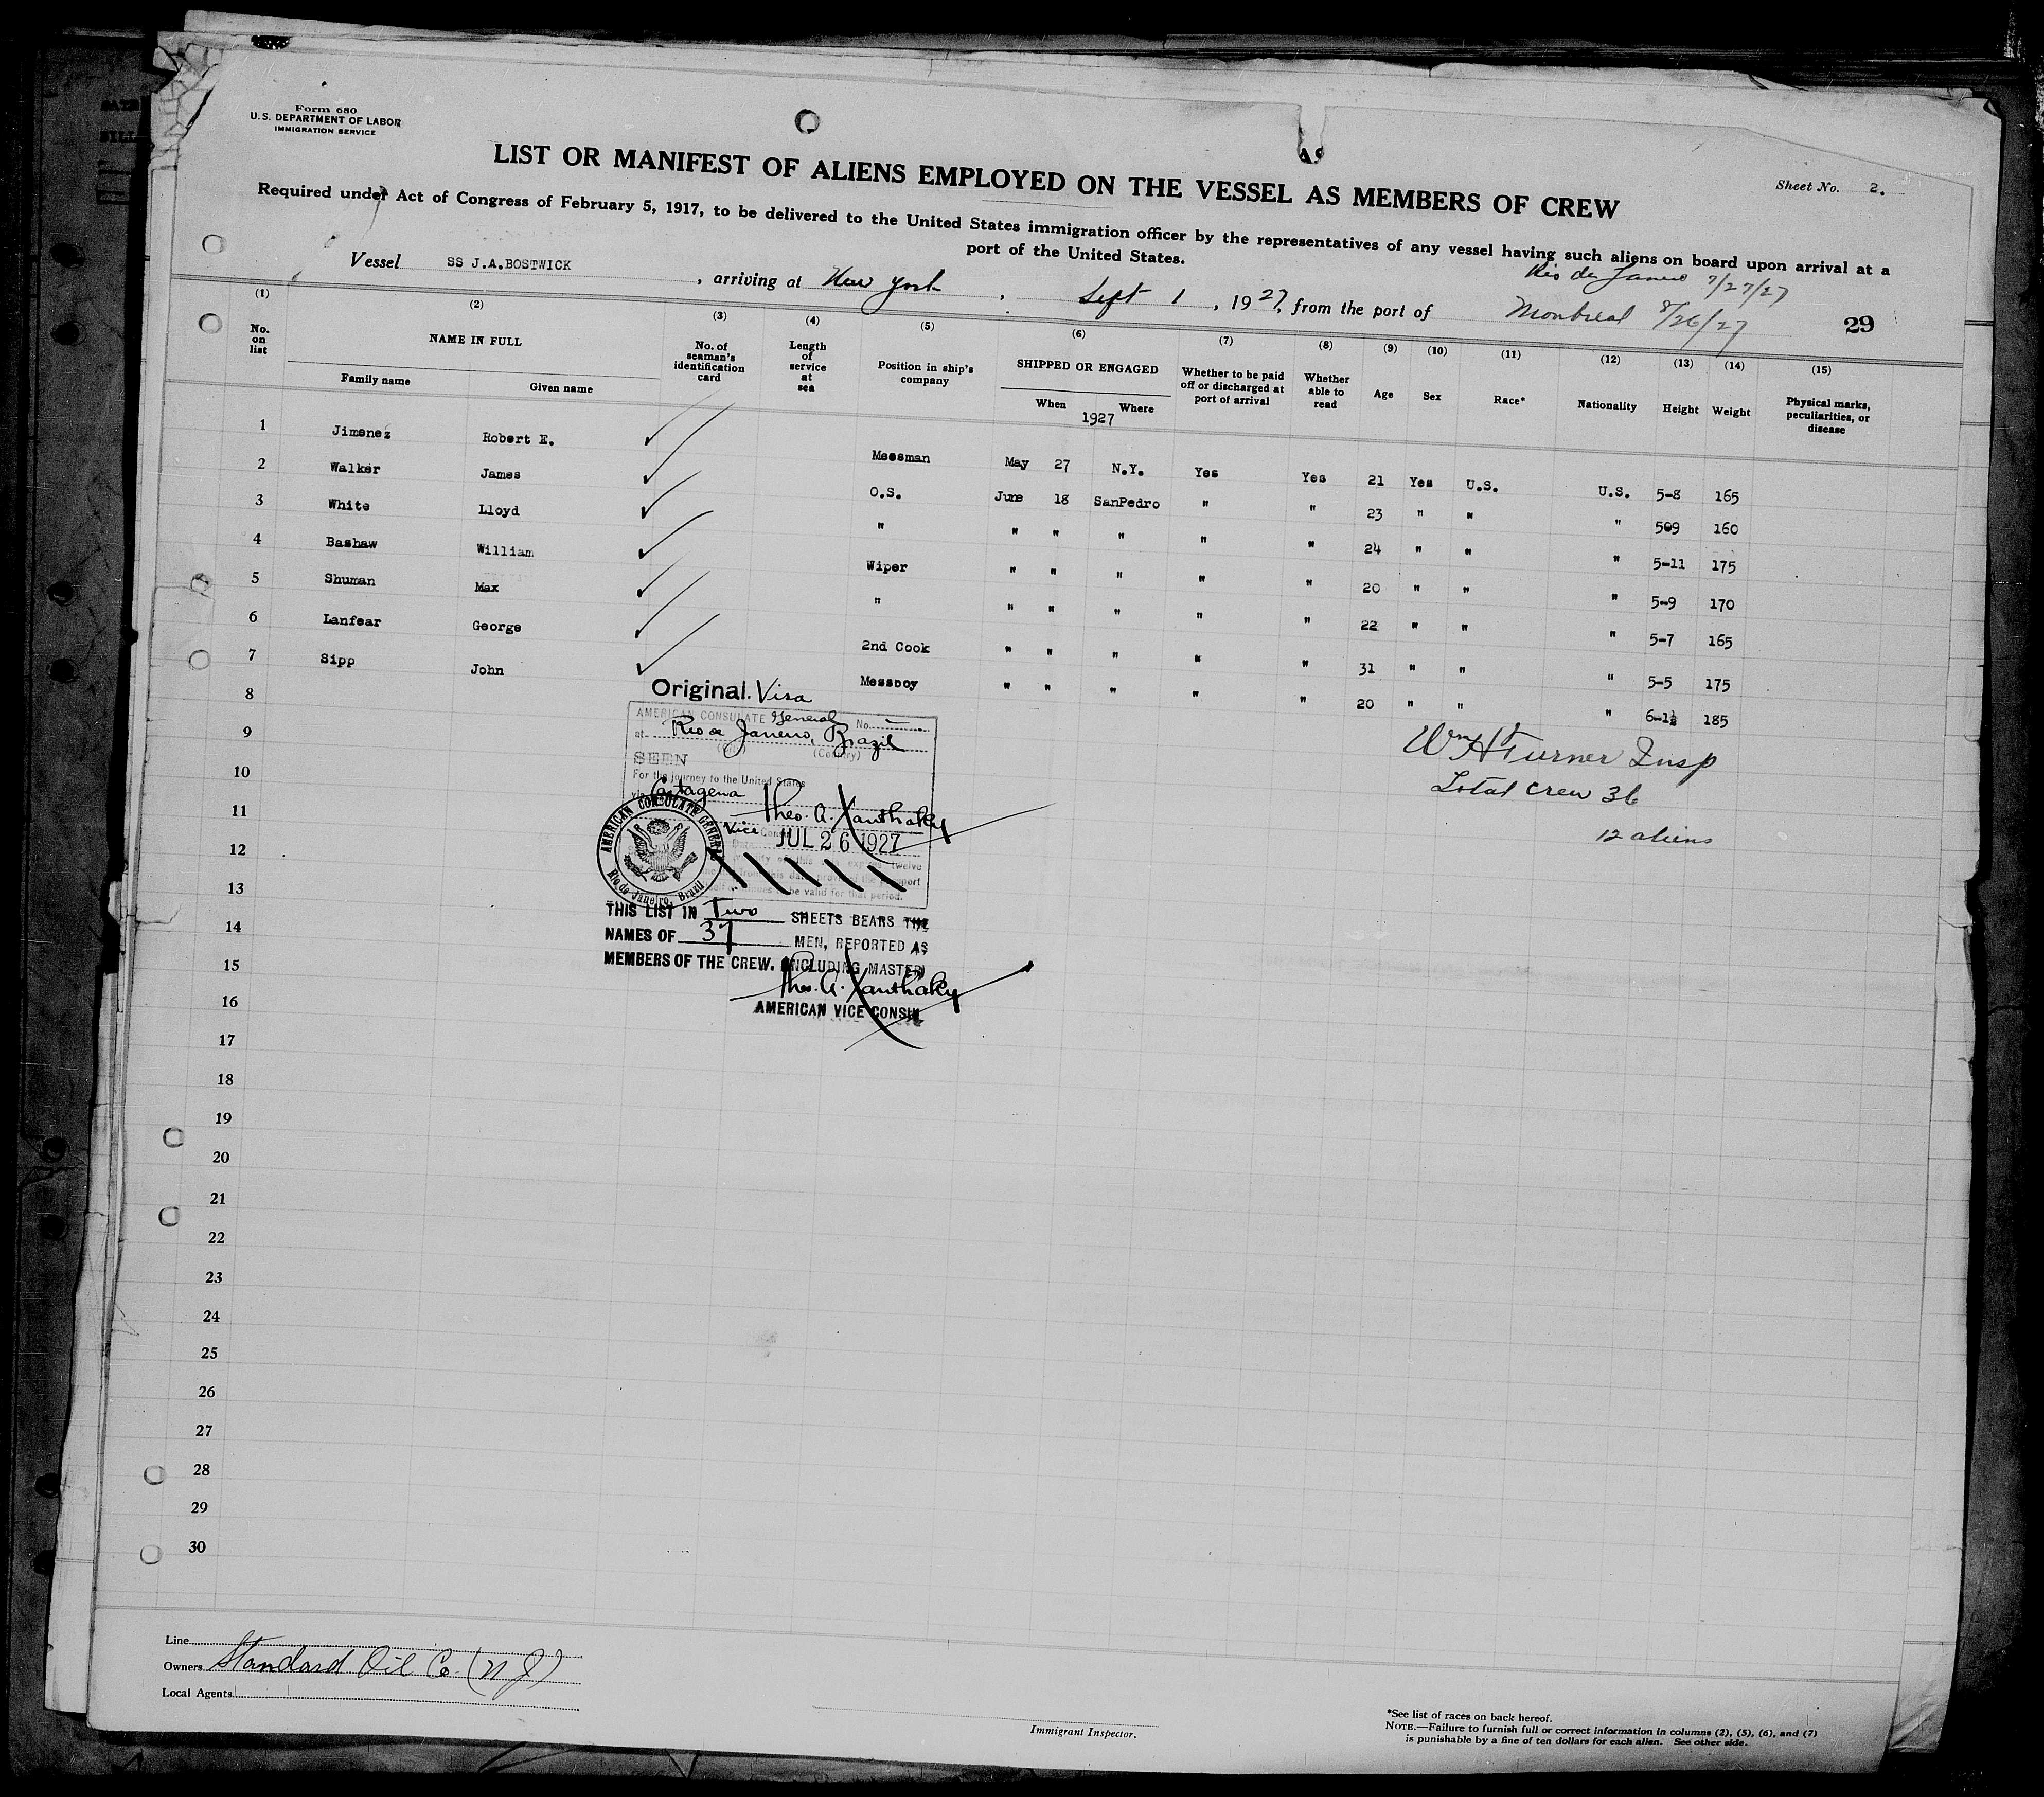 Form 680
U.S. DEPARTMENT OF LABOR
IMMIGRATION SERVICE
LIST OR MANIFEST OF ALIENS EMPLOYED ON THE VESSEL AS MEMBERS OF CREW
AS
Sheet No. 2.
Required under Act of Congress of February 5, 1917, to be delivered to the United States immigration officer by the representatives of any vessel having such aliens on board upon arrival at a
port of the United States.
Rio de Janeiro 7/27/27
Vessel SS J.A.BOSTWICK , arriving at New York , Sept 1 , 1927, from the port of Montreal 8/26/27
29
(1) (2) (3) (4) (5) (6) (7) (8) (9) (10) (11) (12) (13) (14) (15)
No. on list NAME IN FULL Family name Given name No. of seaman's identification card Length of service at sea Position in ship's company SHIPPED OR ENGAGED When Where Whether to be paid off or discharged at port of arrival Whether able to read Age Sex Race* Nationality Height Weight Physical marks, peculiarities, or disease
1927
1 Jimenez Robert E. Messman May 27 N.Y. Yes Yes 21 Yes U.S. U.S. 5-8 165
2 Walker James O.S. June 18 SanPedro " " 23 " " " 509 160
3 White Lloyd " " " " " " 24 " " " 5-11 175
4 Bashaw William Wiper " " " " " 20 " " " 5-9 170
5 Shuman Max " " " " " " 22 " " " 5-7 165
6 Lanfear George 2nd Cook " " " " " 31 " " " 5-5 175
7 Sipp John Messboy " " " " " 20 " " " 6-1½ 185
8
9
10
11
12
13
14
15
16
17
18
19
20
21
22
23
24
25
26
27
28
29
30
Original. Visa
AMERICAN CONSULATE General No.
at Rio de Janeiro, Brazil
(City) (Country)
SEEN
For the journey to the United States
via Cartagena
Theo. A. Xanthaky
Vice Consul
Date JUL 26 1927
be valid for that period.
AMERICAN CONSULATE GENERAL
Rio de Janeiro, Brazil
THIS LIST IN Two SHEETS BEARS THE
NAMES OF 37 MEN, REPORTED AS
MEMBERS OF THE CREW. INCLUDING MASTER
Theo. A. Xanthaky
AMERICAN VICE CONSUL
Wm H Turner Insp
Total Crew 36
12 aliens
Line
Owners Standard Oil Co. (N J)
Local Agents
Immigrant Inspector.
*See list of races on back hereof.
NOTE.—Failure to furnish full or correct information in columns (2), (5), (6), and (7)
is punishable by a fine of ten dollars for each alien. See other side.